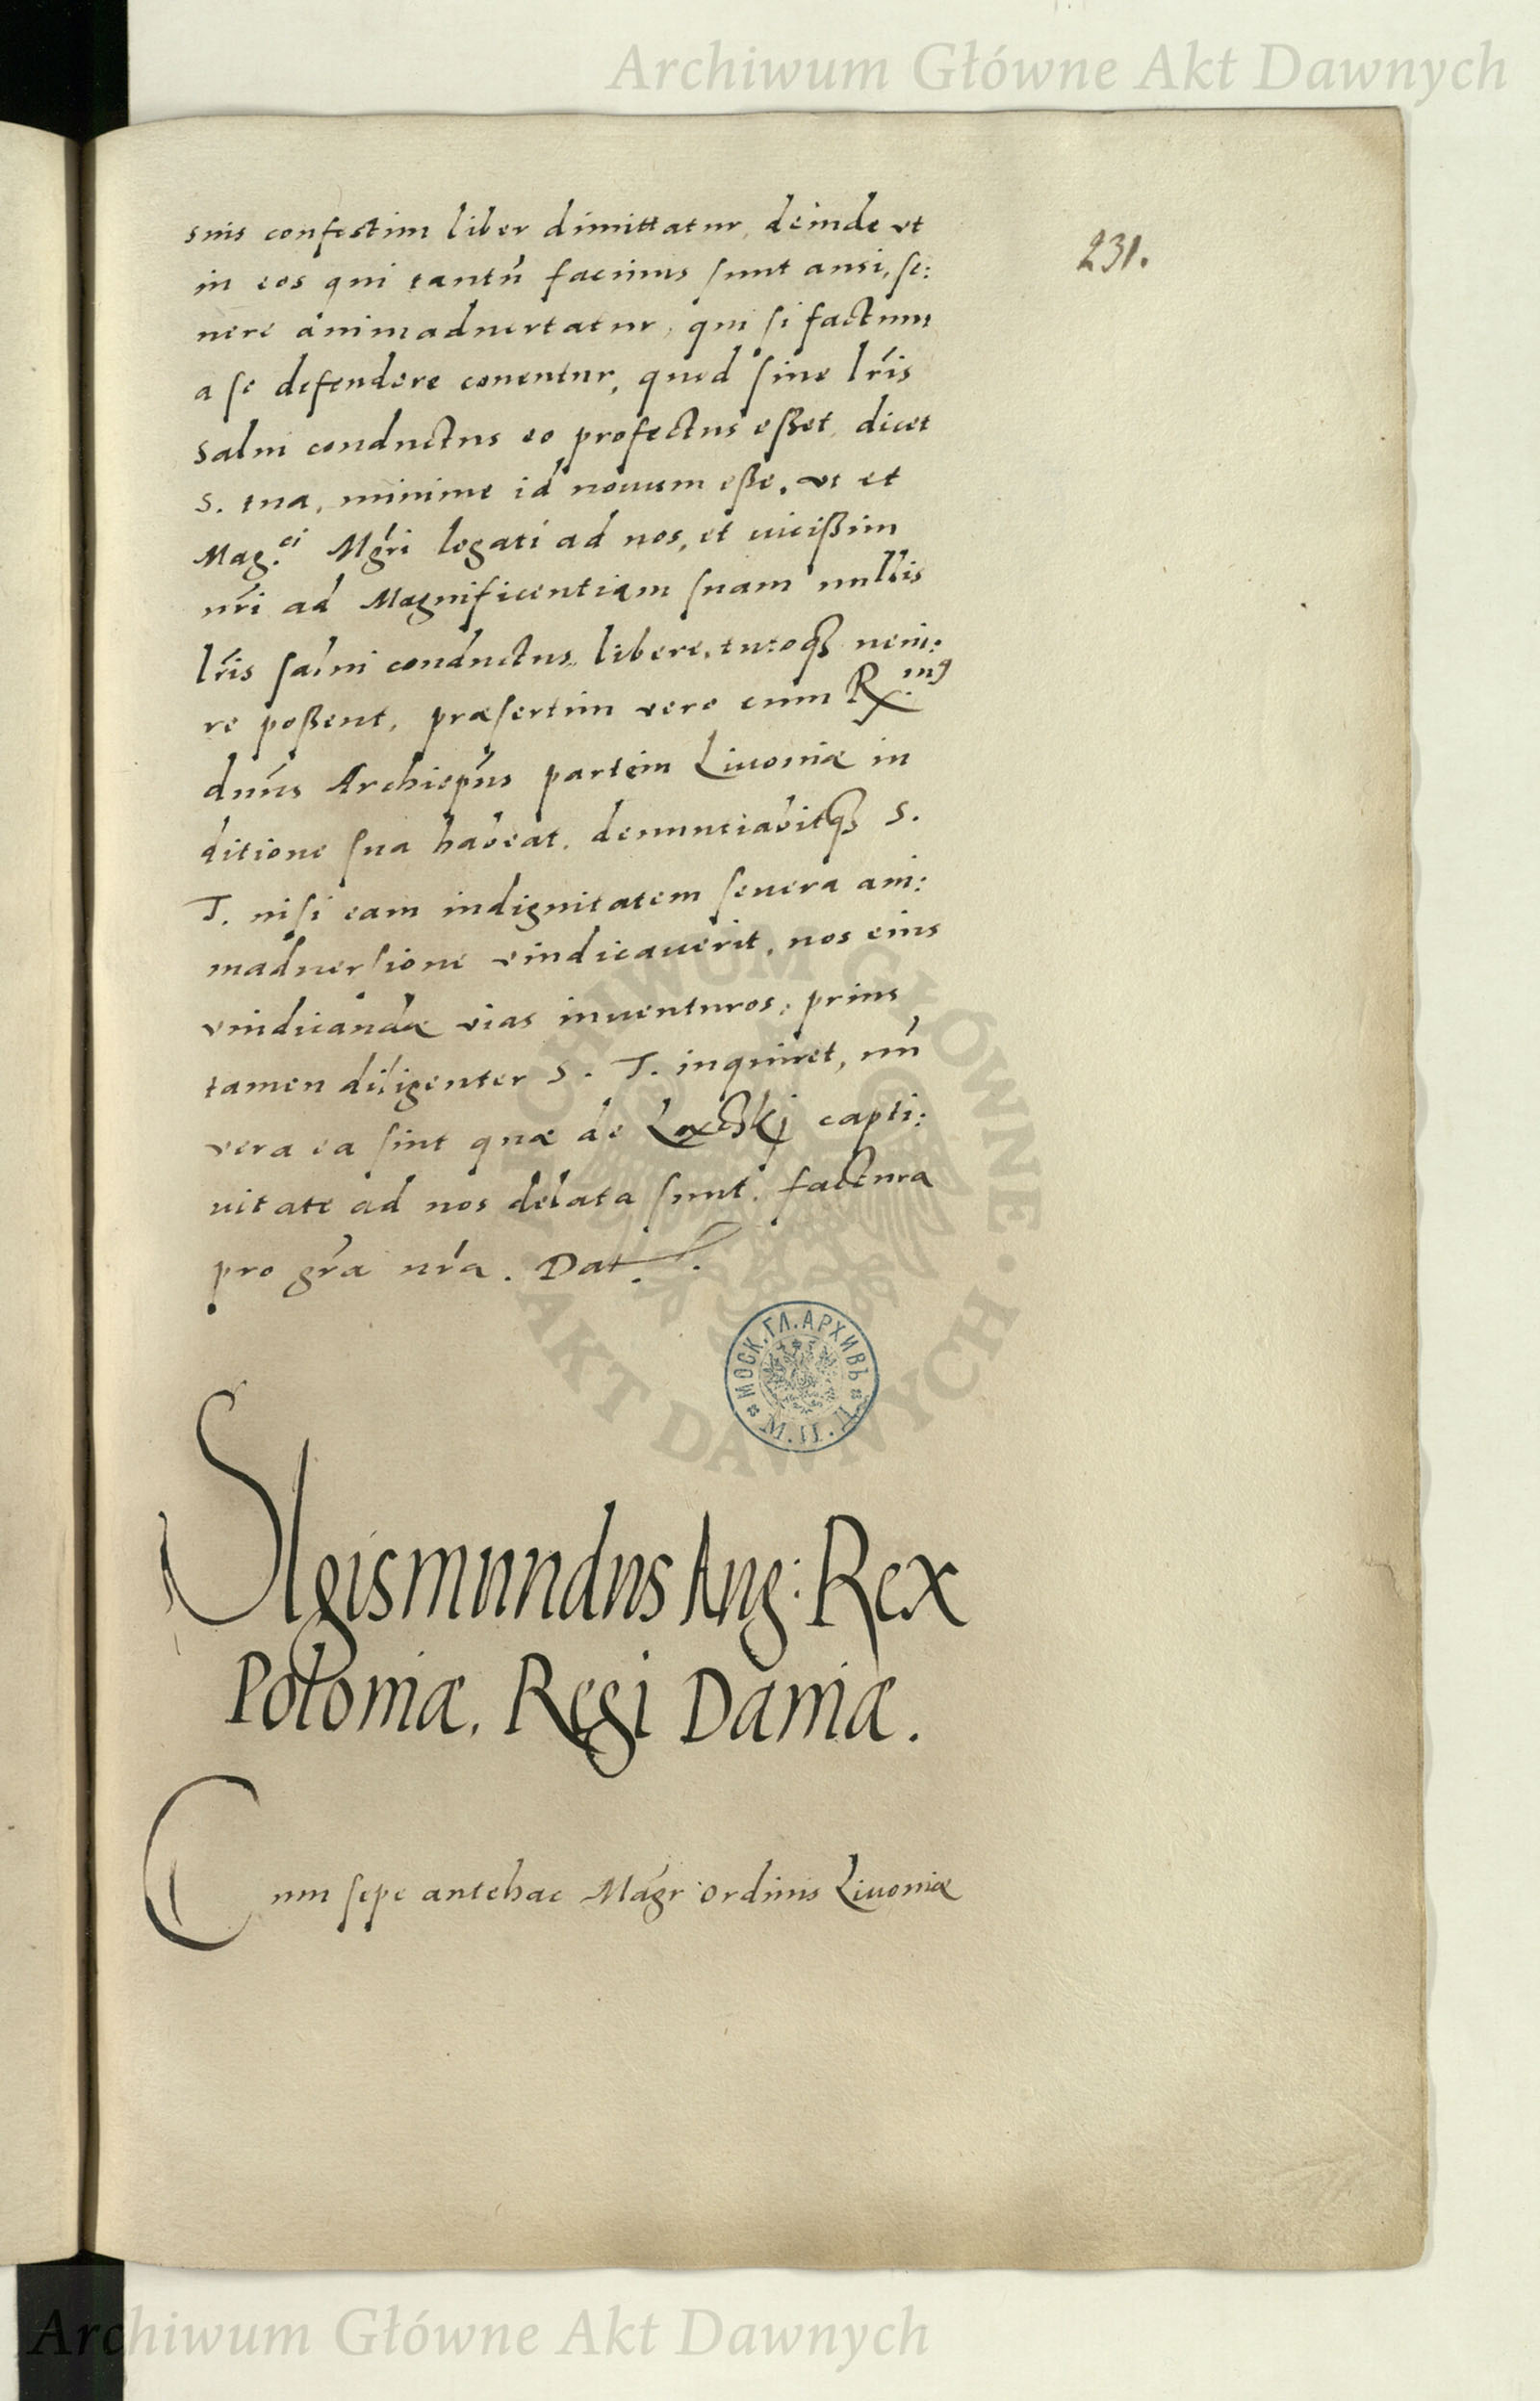 Archiwum Główne Akt Dawnych
231.
suis confestim liber dimittatur, deinde vt
in eos qui tantũ facinus sunt ausi, se:
uere animaduertatur, qui si factum
a se defendere conentur, quod sine lr̃is
salui conductus eo profectus eßet, dicet
S. tua, minime id nouum eße, vt et
Mag.ci Mgr̃i legati ad nos, et uicißim
nr̃i ad Magnificentiam suam nullis
lr̃is salui conductus, libere, tutoqȝ ueni:
re poßent, præsertim vero cum R.mꝰ
dnũs Archiepũs partem Liuoniæ in
ditione sua habeat, denuntiabitqȝ S.
T. nisi eam indignitatem seuera ani:
maduersione vindicauerit, nos eius
vindicandæ vias inuenturos, prius
tamen diligenter S. T. inquiret, nũ
vera ea sint quæ de capti:
uitate ad nos delata sunt, factura
pro gr̃a nr̃a. Dat.
МОСК. ГЛ. АРХИВЪ
М. И. Д.
SIgismundus Aug: Rex
Poloniæ, Regi Daniæ.
Cum sepe antehac Magr̃ Ordinis Liuoniæ
ARCHIWUM GŁÓWNE · AKT DAWNYCH ·
Archiwum Główne Akt Dawnych